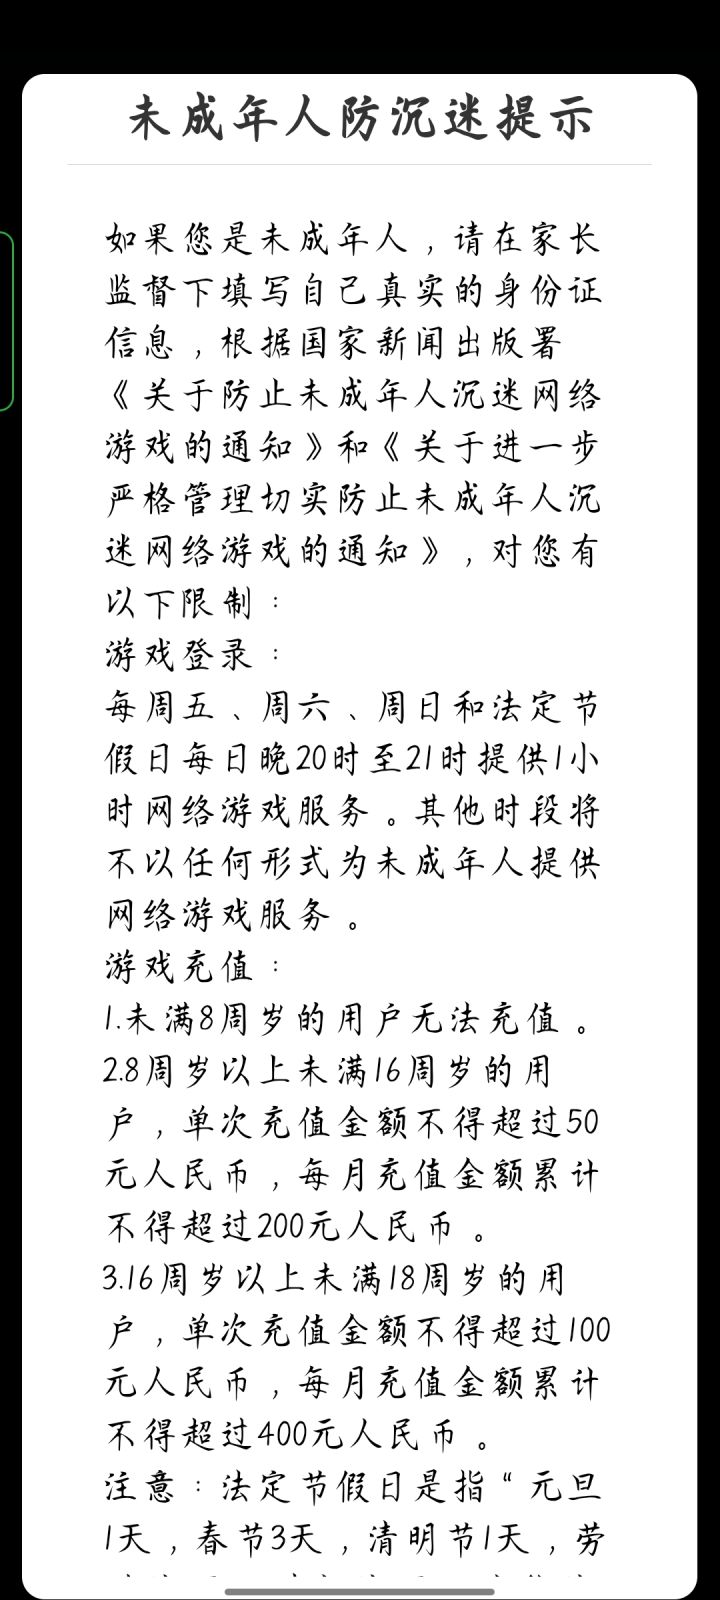 未成年人防沉迷提示
如果您是未成年人，请在家长
监督下填写自己真实的身份证
信息，根据国家新闻出版署
《关于防止未成年人沉迷网络
游戏的通知》和《关于进一步
严格管理切实防止未成年人沉
迷网络游戏的通知》，对您有
以下限制：
游戏登录：
每周五、周六、周日和法定节
假日每日晚20时至21时提供1小
时网络游戏服务。其他时段将
不以任何形式为未成年人提供
网络游戏服务。
游戏充值：
1.未满8周岁的用户无法充值。
2.8周岁以上未满16周岁的用
户，单次充值金额不得超过50
元人民币，每月充值金额累计
不得超过200元人民币。
3.16周岁以上未满18周岁的用
户，单次充值金额不得超过100
元人民币，每月充值金额累计
不得超过400元人民币。
注意：法定节假日是指“元旦
1天，春节3天，清明节1天，劳